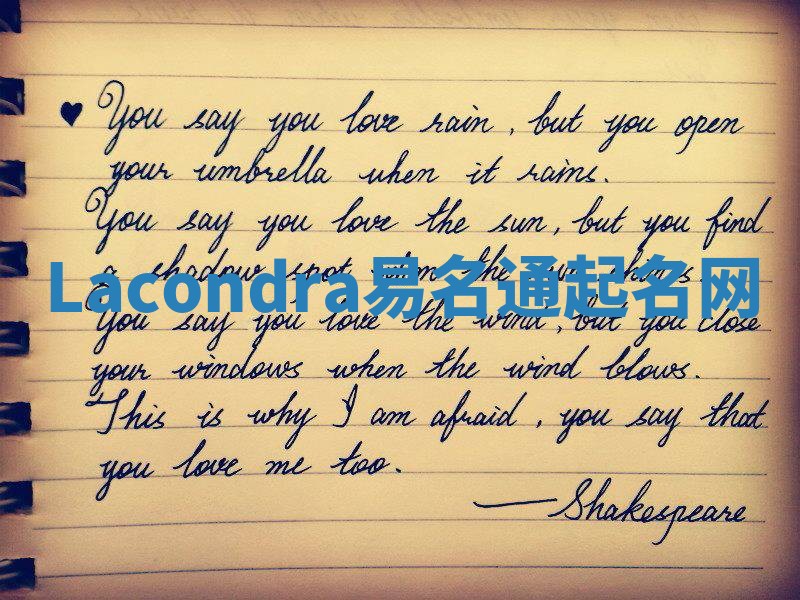 ♥ You say you love rain, but you open
your umbrella when it rains.
You say you love the sun, but you find
a shadow spot when the sun shines.
Lacondra易名通起名网
You say you love the wind, but you close
your windows when the wind blows.
This is why I am afraid, you say that
you love me too.
—Shakespeare